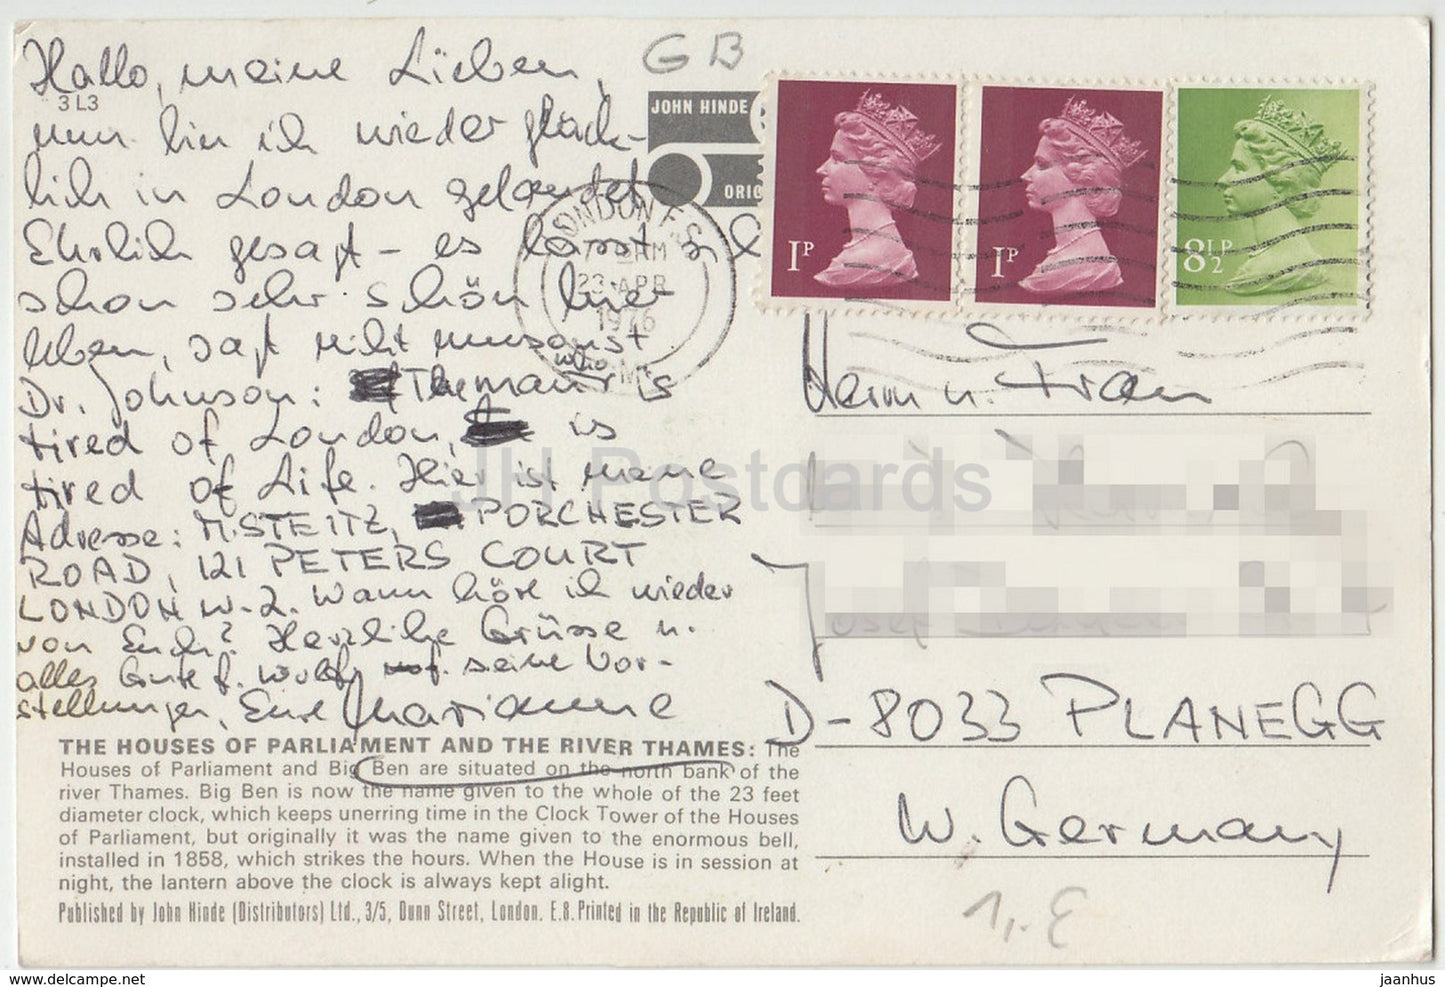 Hallo, meine Lieben,
3L3
nun bin ich wieder glück-
lich in London gelandet
Ehrlich gesagt - es lässt sich
schon sehr schön hier
leben, sagt nicht umsonst
Dr. Johnson: The man who is
tired of London, is
tired of Life. Hier ist meine
Adresse: M. STEITZ, PORCHESTER
ROAD, 121 PETERS COURT
LONDON W-2. Wann höre ich wieder
von Euch? Herzliche Grüsse u.
alles Gute f. Wulf seine Vor-
stellungen, Eure Marianne
THE HOUSES OF PARLIAMENT AND THE RIVER THAMES: The
Houses of Parliament and Big Ben are situated on the north bank of the
river Thames. Big Ben is now the name given to the whole of the 23 feet
diameter clock, which keeps unerring time in the Clock Tower of the Houses
of Parliament, but originally it was the name given to the enormous bell,
installed in 1858, which strikes the hours. When the House is in session at
night, the lantern above the clock is always kept alight.
Published by John Hinde (Distributors) Ltd., 3/5, Dunn Street, London. E.8. Printed in the Republic of Ireland.
GB
JOHN HINDE
ORIG
LONDON F.S.
PM
23 APR
1976
1P
1P
8½P
Herrn u. Frau
Josef
D-8033 PLANEGG
W. Germany
1,- E
JH Postcards
All-my-collection.com
jaanhus